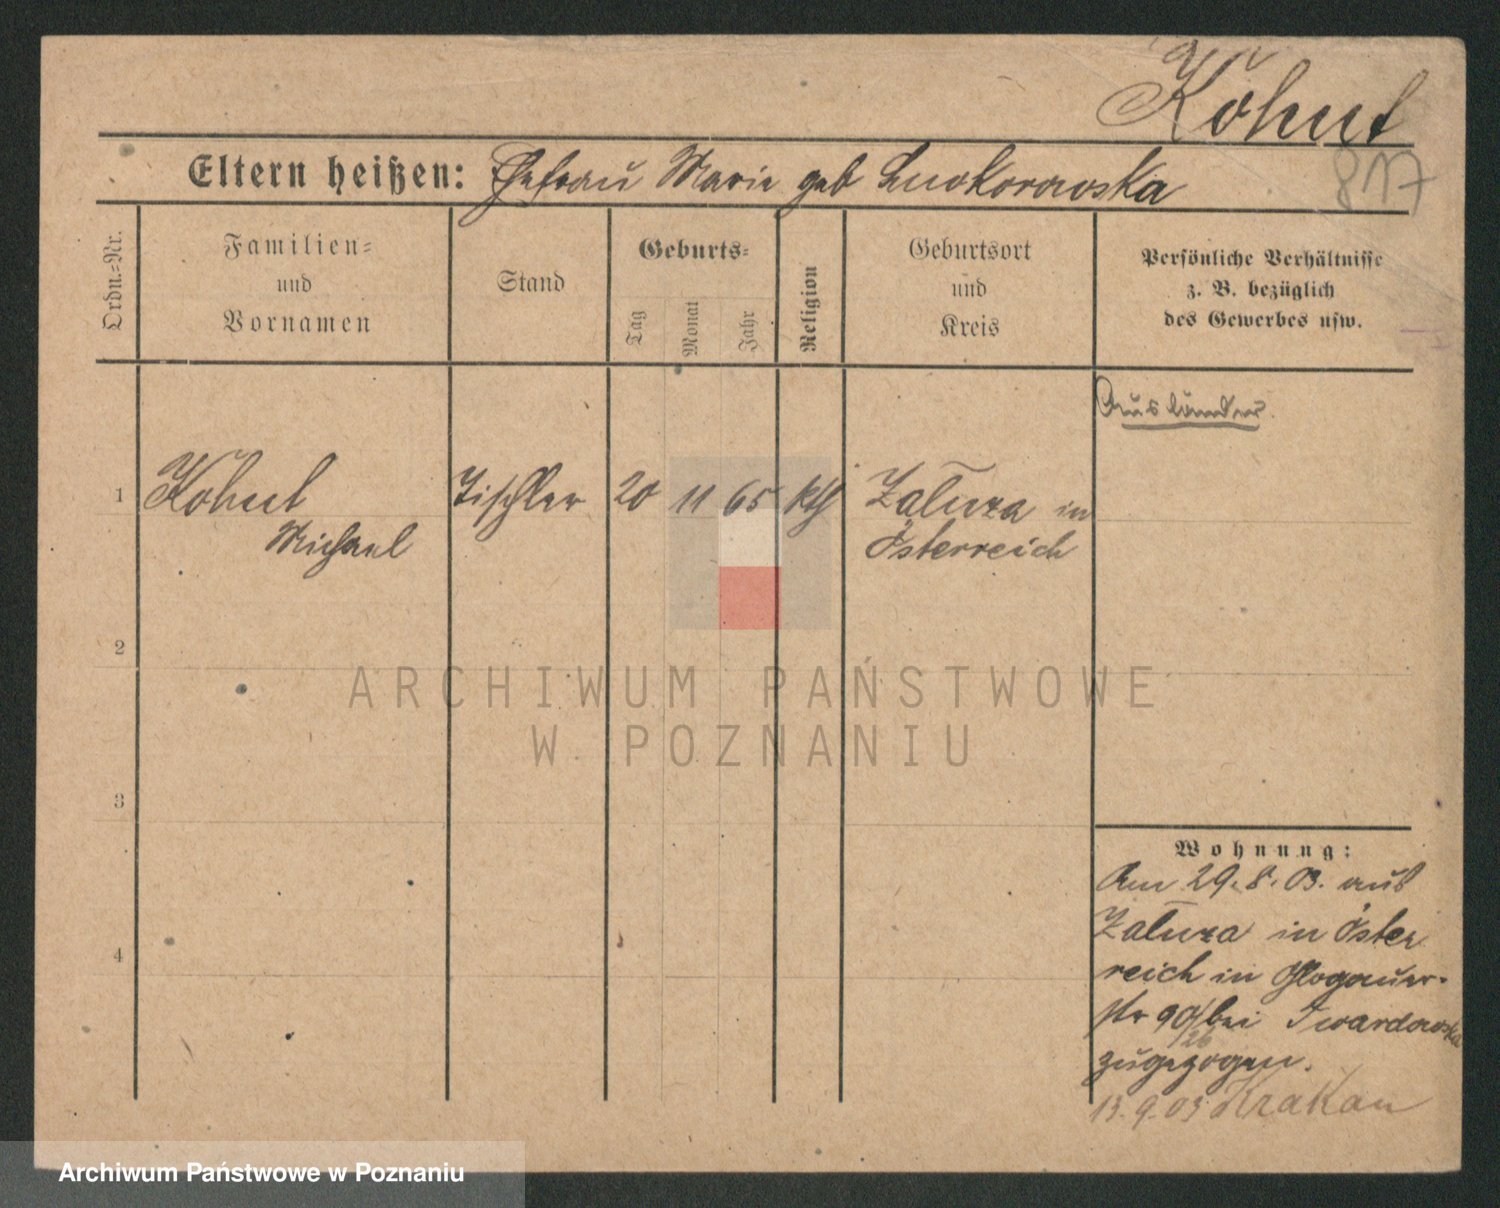 Kohut
817
Eltern heißen: Ehefrau Marie geb
Ordn.=Nr.
Familien=
und
Vornamen
Stand
Geburts=
Tag
Monat
Jahr
Religion
Geburtsort
und
Kreis
Persönliche Verhältnisse
z. B. bezüglich
des Gewerbes usw.
Ausländer.
1 Kohut Tischler 20 11 65 kth Zaluza in
Michael Österreich
2
ARCHIWUM PAŃSTWOWE
W POZNANIU
3
4
Wohnung:
Am 29.8.03. aus
Zaluza in Öster
reich in Glogauer-
str 90/26 bei Twardowska
zugezogen.
13.9.03 Krakau
Archiwum Państwowe w Poznaniu